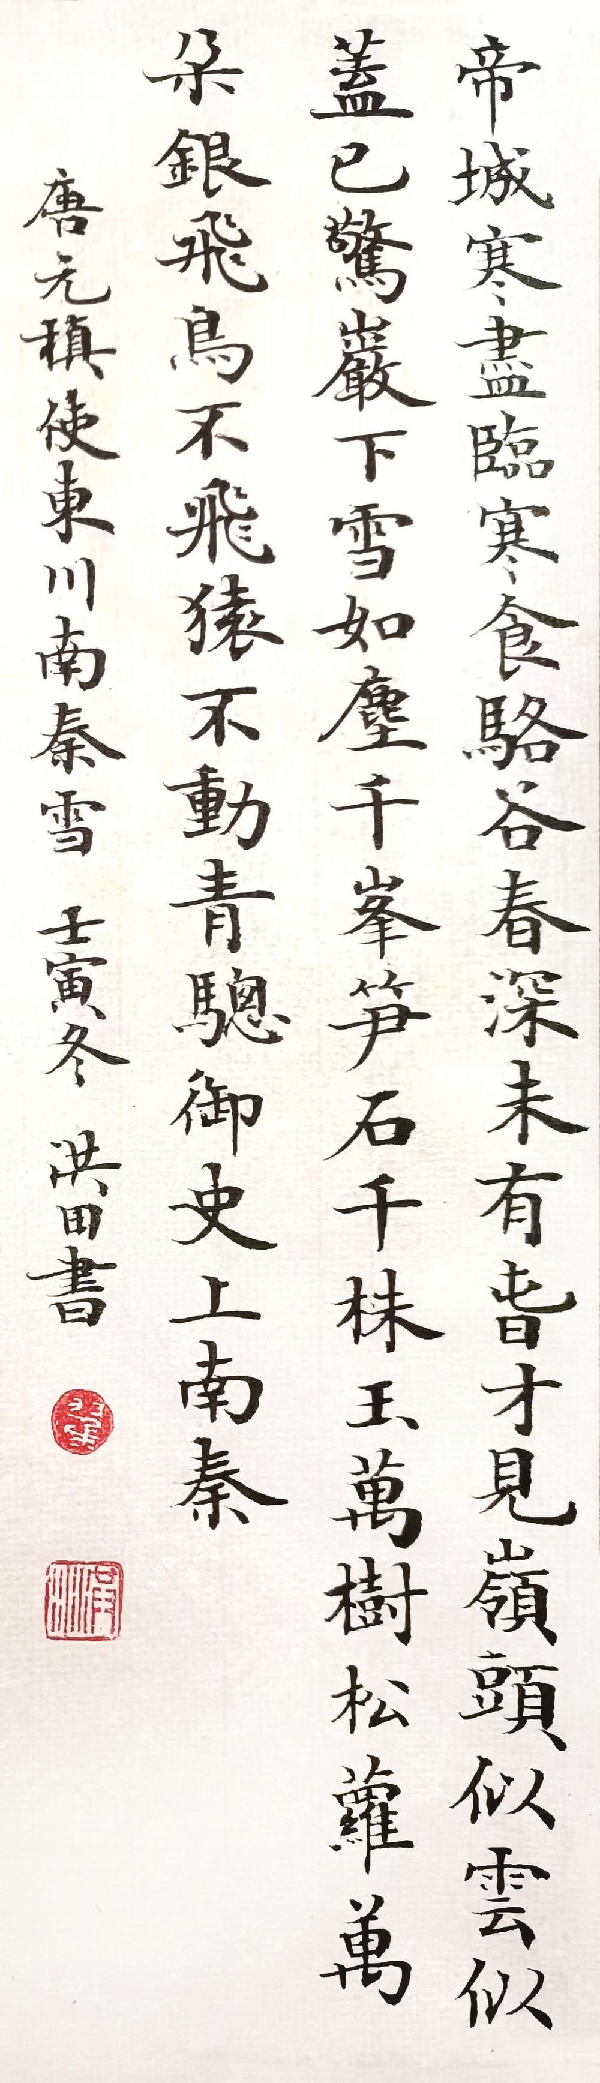 帝城寒盡臨寒食駱谷春深未有旾才見嶺頭似雲似
蓋已驚巖下雪如塵千峯笋石千株玉萬樹松蘿萬
朵銀飛鳥不飛猿不動青驄御史上南秦
唐元稹使東川南秦雪 壬寅冬 洪田書